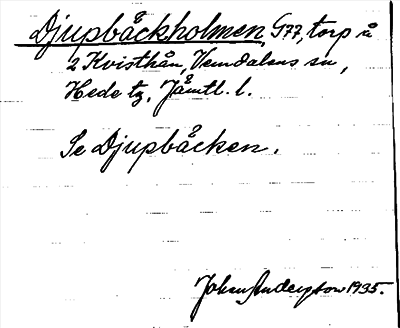 Djupbäckholmen, G77, torp å
2 Kvisthån, Vemdalens sn,
Hede tg, Jämtl. l.
Se Djupbäcken.
Johan Andersson 1935.